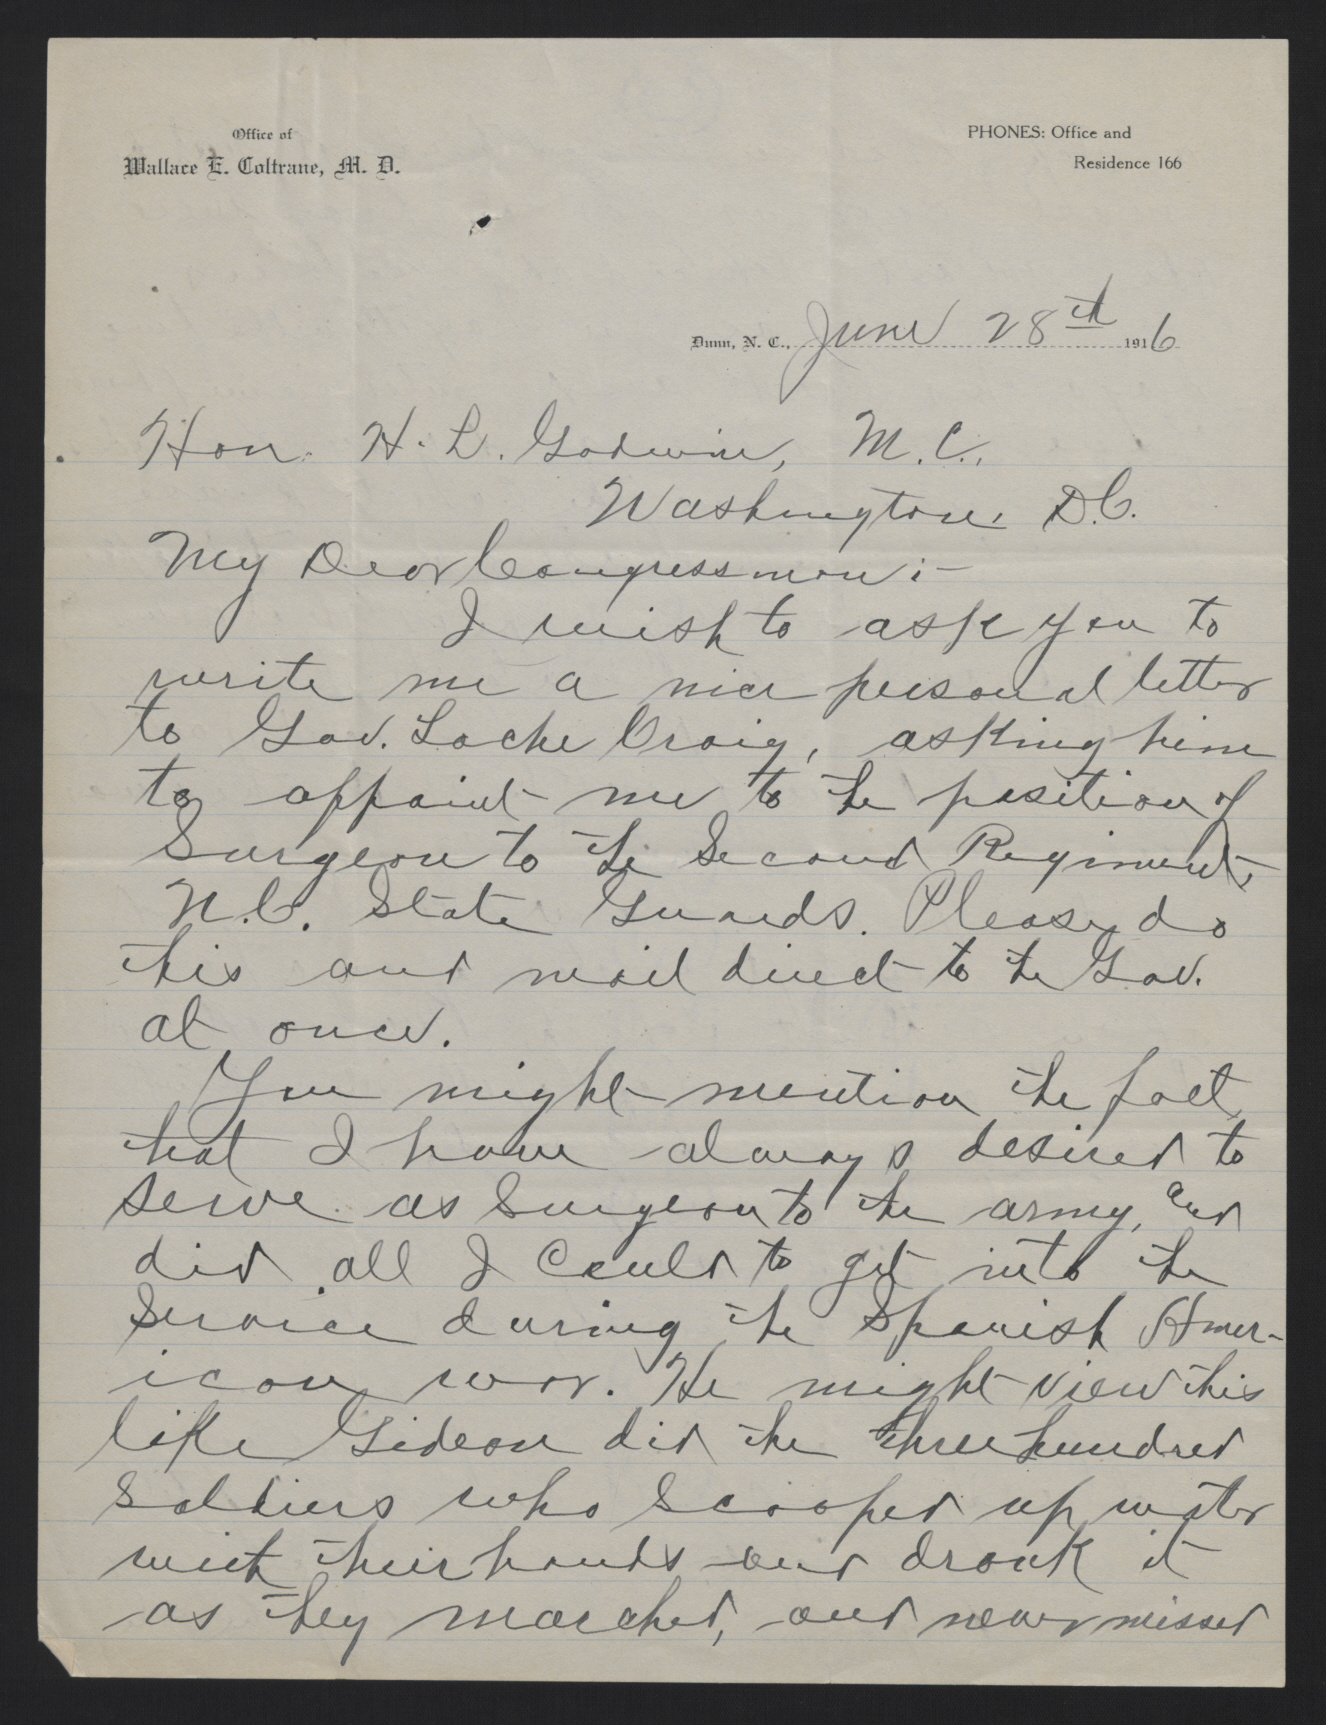 Office of
Wallace E. Coltrane, M. D.
PHONES: Office and
Residence 166
Dunn, N. C., June 28th 1916
Hon. H. L. Godwin, M.C.,
Washington, D.C.
My Dear Congressman:-
I wish to ask you to
write me a nice personal letter
to Gov. Locke Craig, asking him
to appoint me to the position of
Surgeon to the Second Regiment,
N.C. State Guards. Please do
this and mail direct to the Gov.
at once.
You might mention the fact
that I have always desired to
serve as Surgeon to the army, and
did all I could to get into the
Service during the Spanish Amer-
ican war. He might view this
like Gideon did the three hundred
Soldiers who Scooped up water
with their hands and drank it
as they marched, and never missed